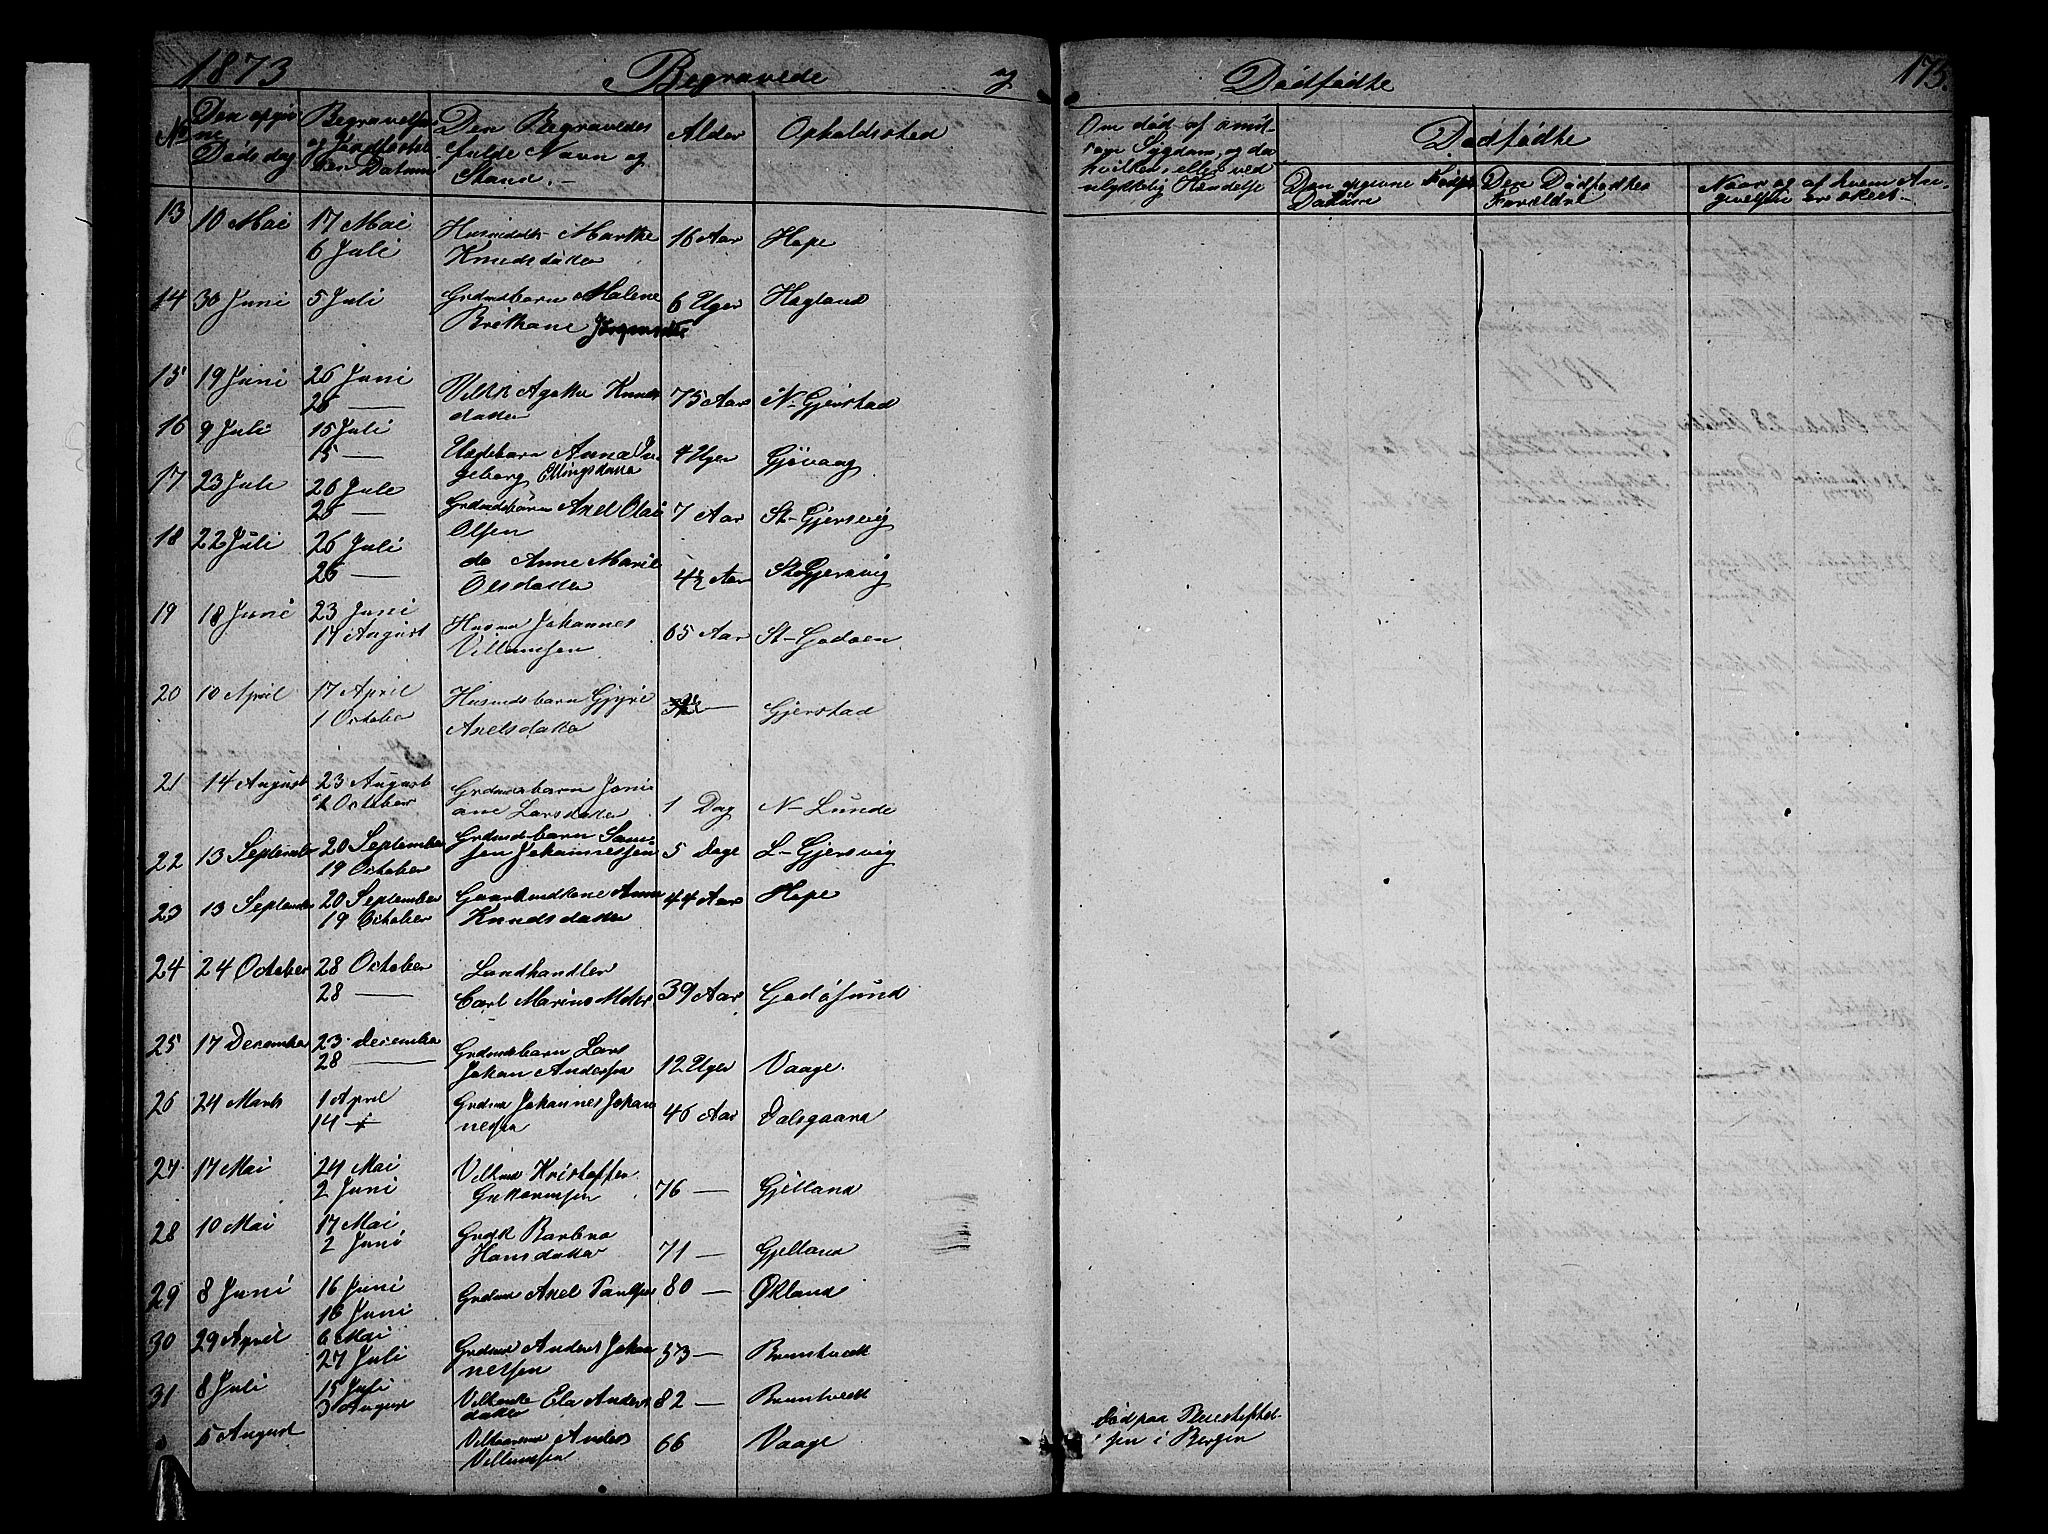 1873 Begravede og Dødfødte 175.
No Den opgivne Dødsdag
Begravelses og Jordfæstelsen Datum
Den Begravedes fulde Navn og Stand.
Alder
Opholdssted
Om død af smitsom Sygdom, og da hvilken, eller ved ulykkelig Hændelse
Dødfødte
Den opgivne Føds Datum
Den Dødfødtes Forældre
Naar og af hvem Angivelsen er skeet
13 10 Mai 17 Mai Marthe 16 Aar Hope
6 Juli Knudsdatter
14 30 Juni 5 Juli Grdmdsbarn Malene 6 Uger Hagland
Brithane
15 19 Juni 26 Juni
26 — Vilkk Agathe Knuds 75 Aar N. Gjerstad
datter
16 9 Juli 15 Juli
15 — Anna In 4 Uger Gjøvaag
geborg Ellingsdatter
17 23 Juli 26 Juli
26 — Grdmdsbarn Axel Olai 7 Aar St-Gjersvig
Olsen
18 22 Juli 26 Juli
26 — do Anne Marie 4½ Aar St Gjersvig
Olsdatter
19 18 Juni 23 Juni
14 August Husmd Johannes 65 Aar St-Godøen
Villumsen
20 10 April 17 April Husmdsbarn — Gjerstad
1 October Axelsdatter
21 14 August 23 August Grdmdsbarn Joni
2 October ane Larsdatter 1 Dag N- Lunde
22 13 September 20 September Grdmdsbarn Sam
19 October sen Johannessen 5 Dage L-Gjersvig
23 13 September 20 September Gaardmdkone Anna 44 Aar Hope
19 October Knudsdatter
24 24 October 28 October Landhandler
28 — Carl Marius 39 Aar Godøsund
25 17 December 23 december Grdmdsbarn Lars
28 — Johan Andersen 12 Uger Vaage.
26 24 Marts 1 April Grdmd Johannes Johan 46 Aar Dalsgaard
14 — nessen
27 17 Mai 24 Mai Vilkmd Kristoffer
2 Juni 76 — Gjelland
28 10 Mai 17 Mai Grdk Barbra
2 Juni Hansdatter 71 — Gjelland
29 8 Juni 16 Juni Grdmd Axel Paulsen 80 — Økland
16 Juni
30 29 April 6 Mai Grdmd Anders Johan 53 — Bruntvedt
27 Juli nessen
31 8 Juli 15 Juli Vilkenke Ela Anders 82 — Bruntvedt
3 August datter
5 August Anders 66 Vaage
Villumsen
død paa Pleiestiftel-
sen i Bergen